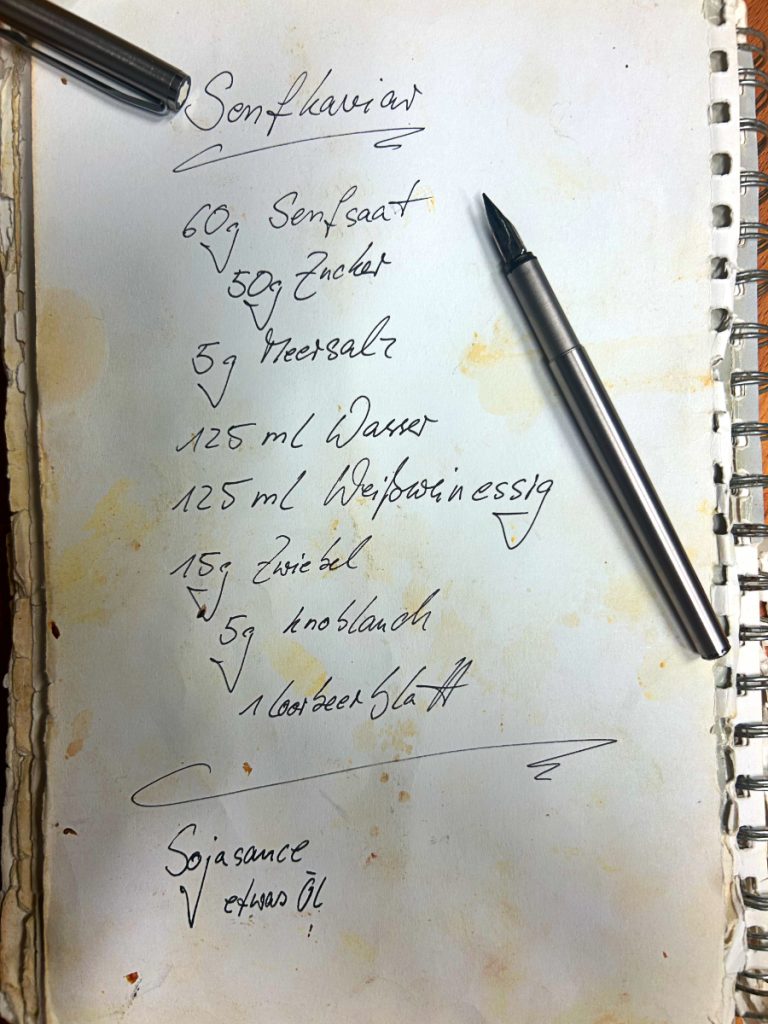 Senfkaviar
60g Senfsaat
50g Zucker
5g Meersalz
125 ml Wasser
125 ml Weißweinessig
15g Zwiebel
5g Knoblauch
1 Loorbeerblatt
Sojasauce
etwas Öl